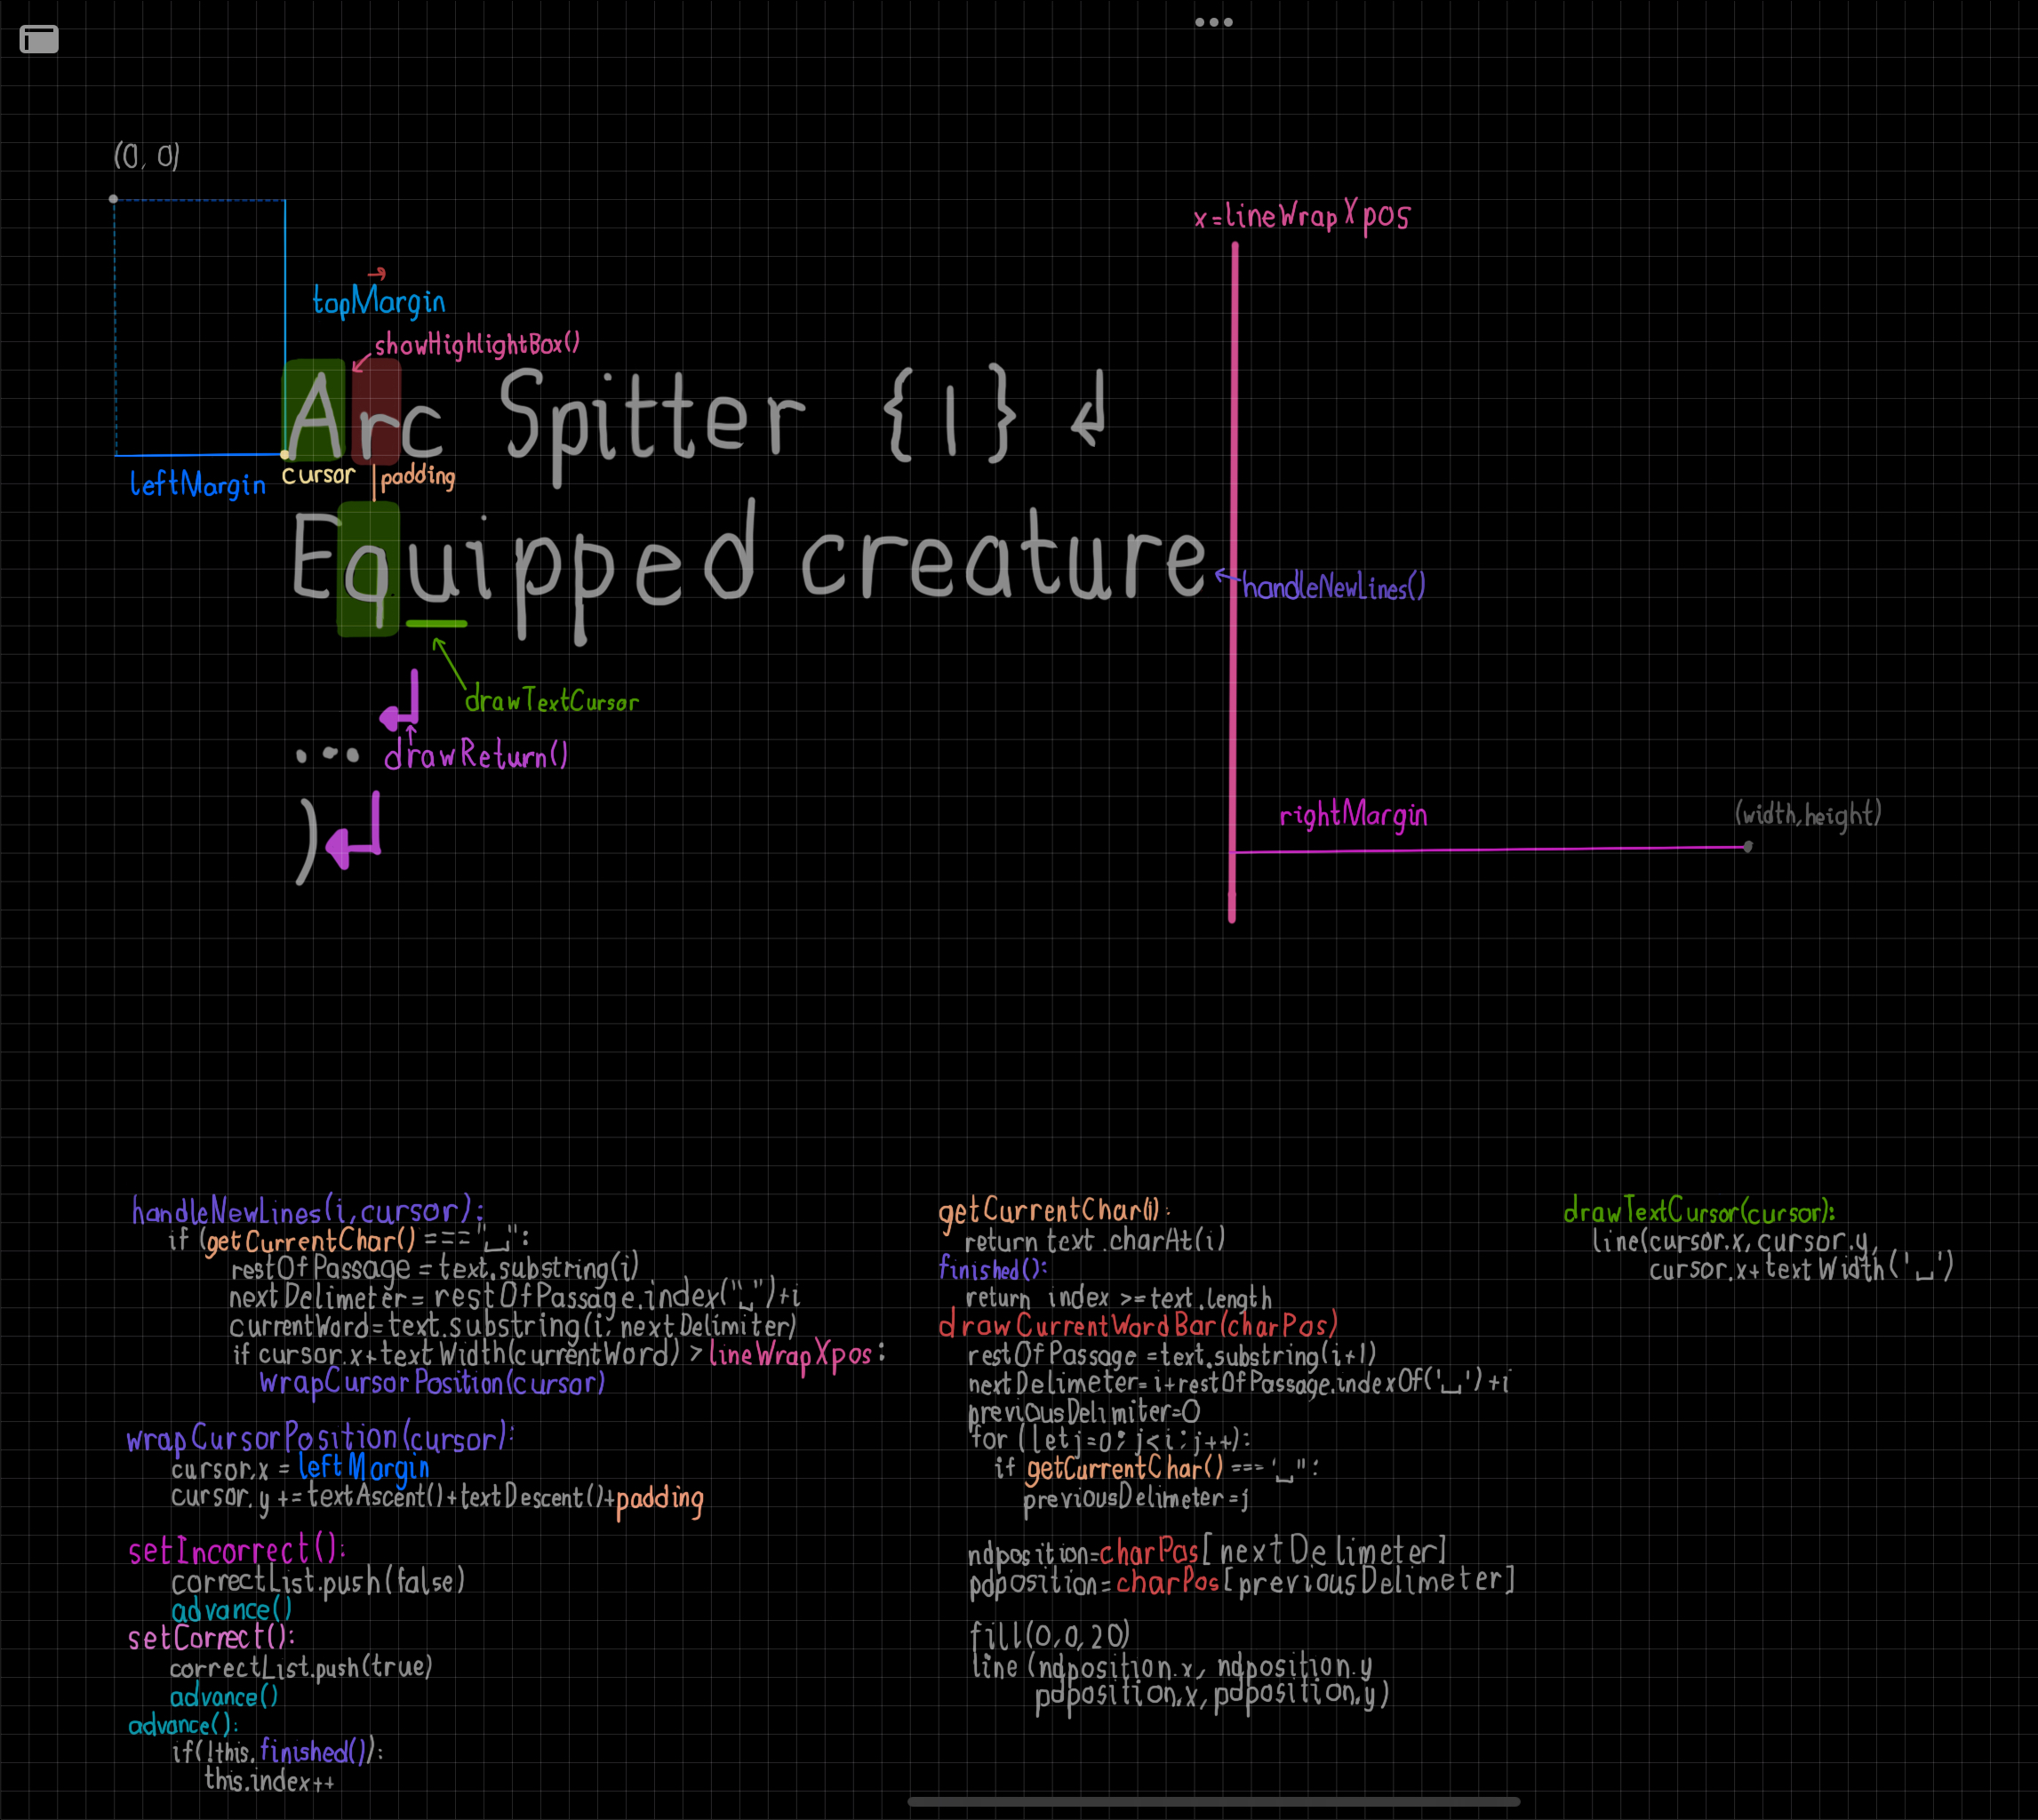 (0, 0)
x=lineWrapXpos
topMargin
showHighlightBox()
Arc Spitter {1} ↲
leftMargin
cursor
padding
Equipped creature
handleNewLines()
drawTextCursor
...
drawReturn()
)
rightMargin
(width,height)
handleNewLines(i,cursor):
if (getCurrentChar() === "␣":
restOfPassage = text.substring(i)
nextDelimeter = restOfPassage.index("␣")+i
currentWord=text.substring(i, nextDelimiter)
if cursor.x+textWidth(currentWord) > lineWrapXpos:
wrapCursorPosition(cursor)
wrapCursorPosition(cursor):
cursor.x = leftMargin
cursor.y += textAscent()+textDescent()+padding
setIncorrect():
correctList.push(false)
advance()
setCorrect():
correctList.push(true)
advance()
advance():
if(!this.finished()):
this.index++
getCurrentChar(i):
return text.charAt(i)
finished():
return index >=text.length
drawCurrentWordBar(charPos)
restOfPassage =text.substring(i+1)
nextDelimeter=i+restOfPassage.indexOf('␣')+i
previousDelimiter=0
for (let j=0; j<i; j++):
if getCurrentChar() === '␣":
previousDelimeter=j
ndposition=charPos[nextDelimeter]
pdposition=charPos[previousDelimeter]
fill(0,0,20)
line (ndposition.x, ndposition.y
pdposition.x, pdposition.y)
drawTextCursor(cursor):
line(cursor.x, cursor.y,
cursor.x+textWidth('␣')